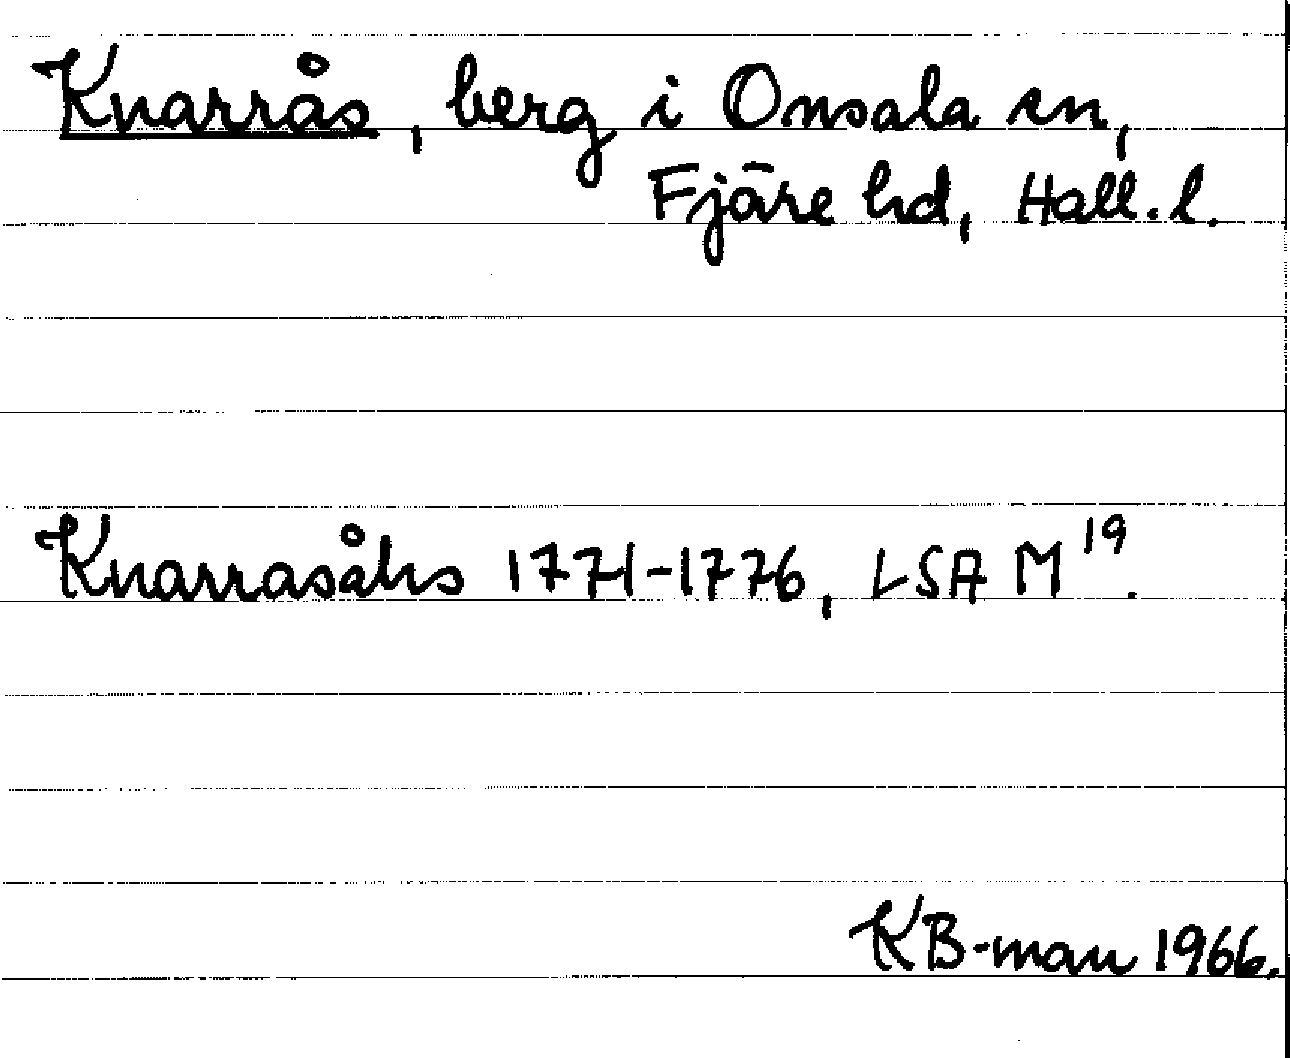 Knarrås, berg i Onsala sn,
Fjäre hd, Hall. l.
Knarrasåhs 1771-1776, LSA M 19.
KB-mau 1966.